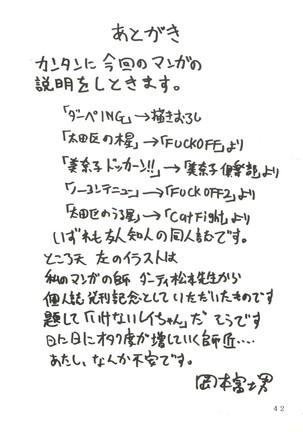 あとがき
カンタンに今回のマンガの
説明をしときます。
「ダーペING」→描きむろし
「太田区の木星」→「FUCK OFF」より
「美奈子ドッカーン!!」→「美奈子倶楽部」より
「ノーコンテニュー」→「FUCK OFF2」より
「太田区のうる星」→「Cat Fight」より
いずれも友人知人の同人誌です。
ところ天 左のイラストは
私のマンガの師 ダーティ松本先生から
個人誌発刊記念としていただいたものです
題して「いけないレイちゃん」だ そうです
日に日にオタク度が増していく師匠‥‥
あたし、なんか不安です。
岡本富士男
42